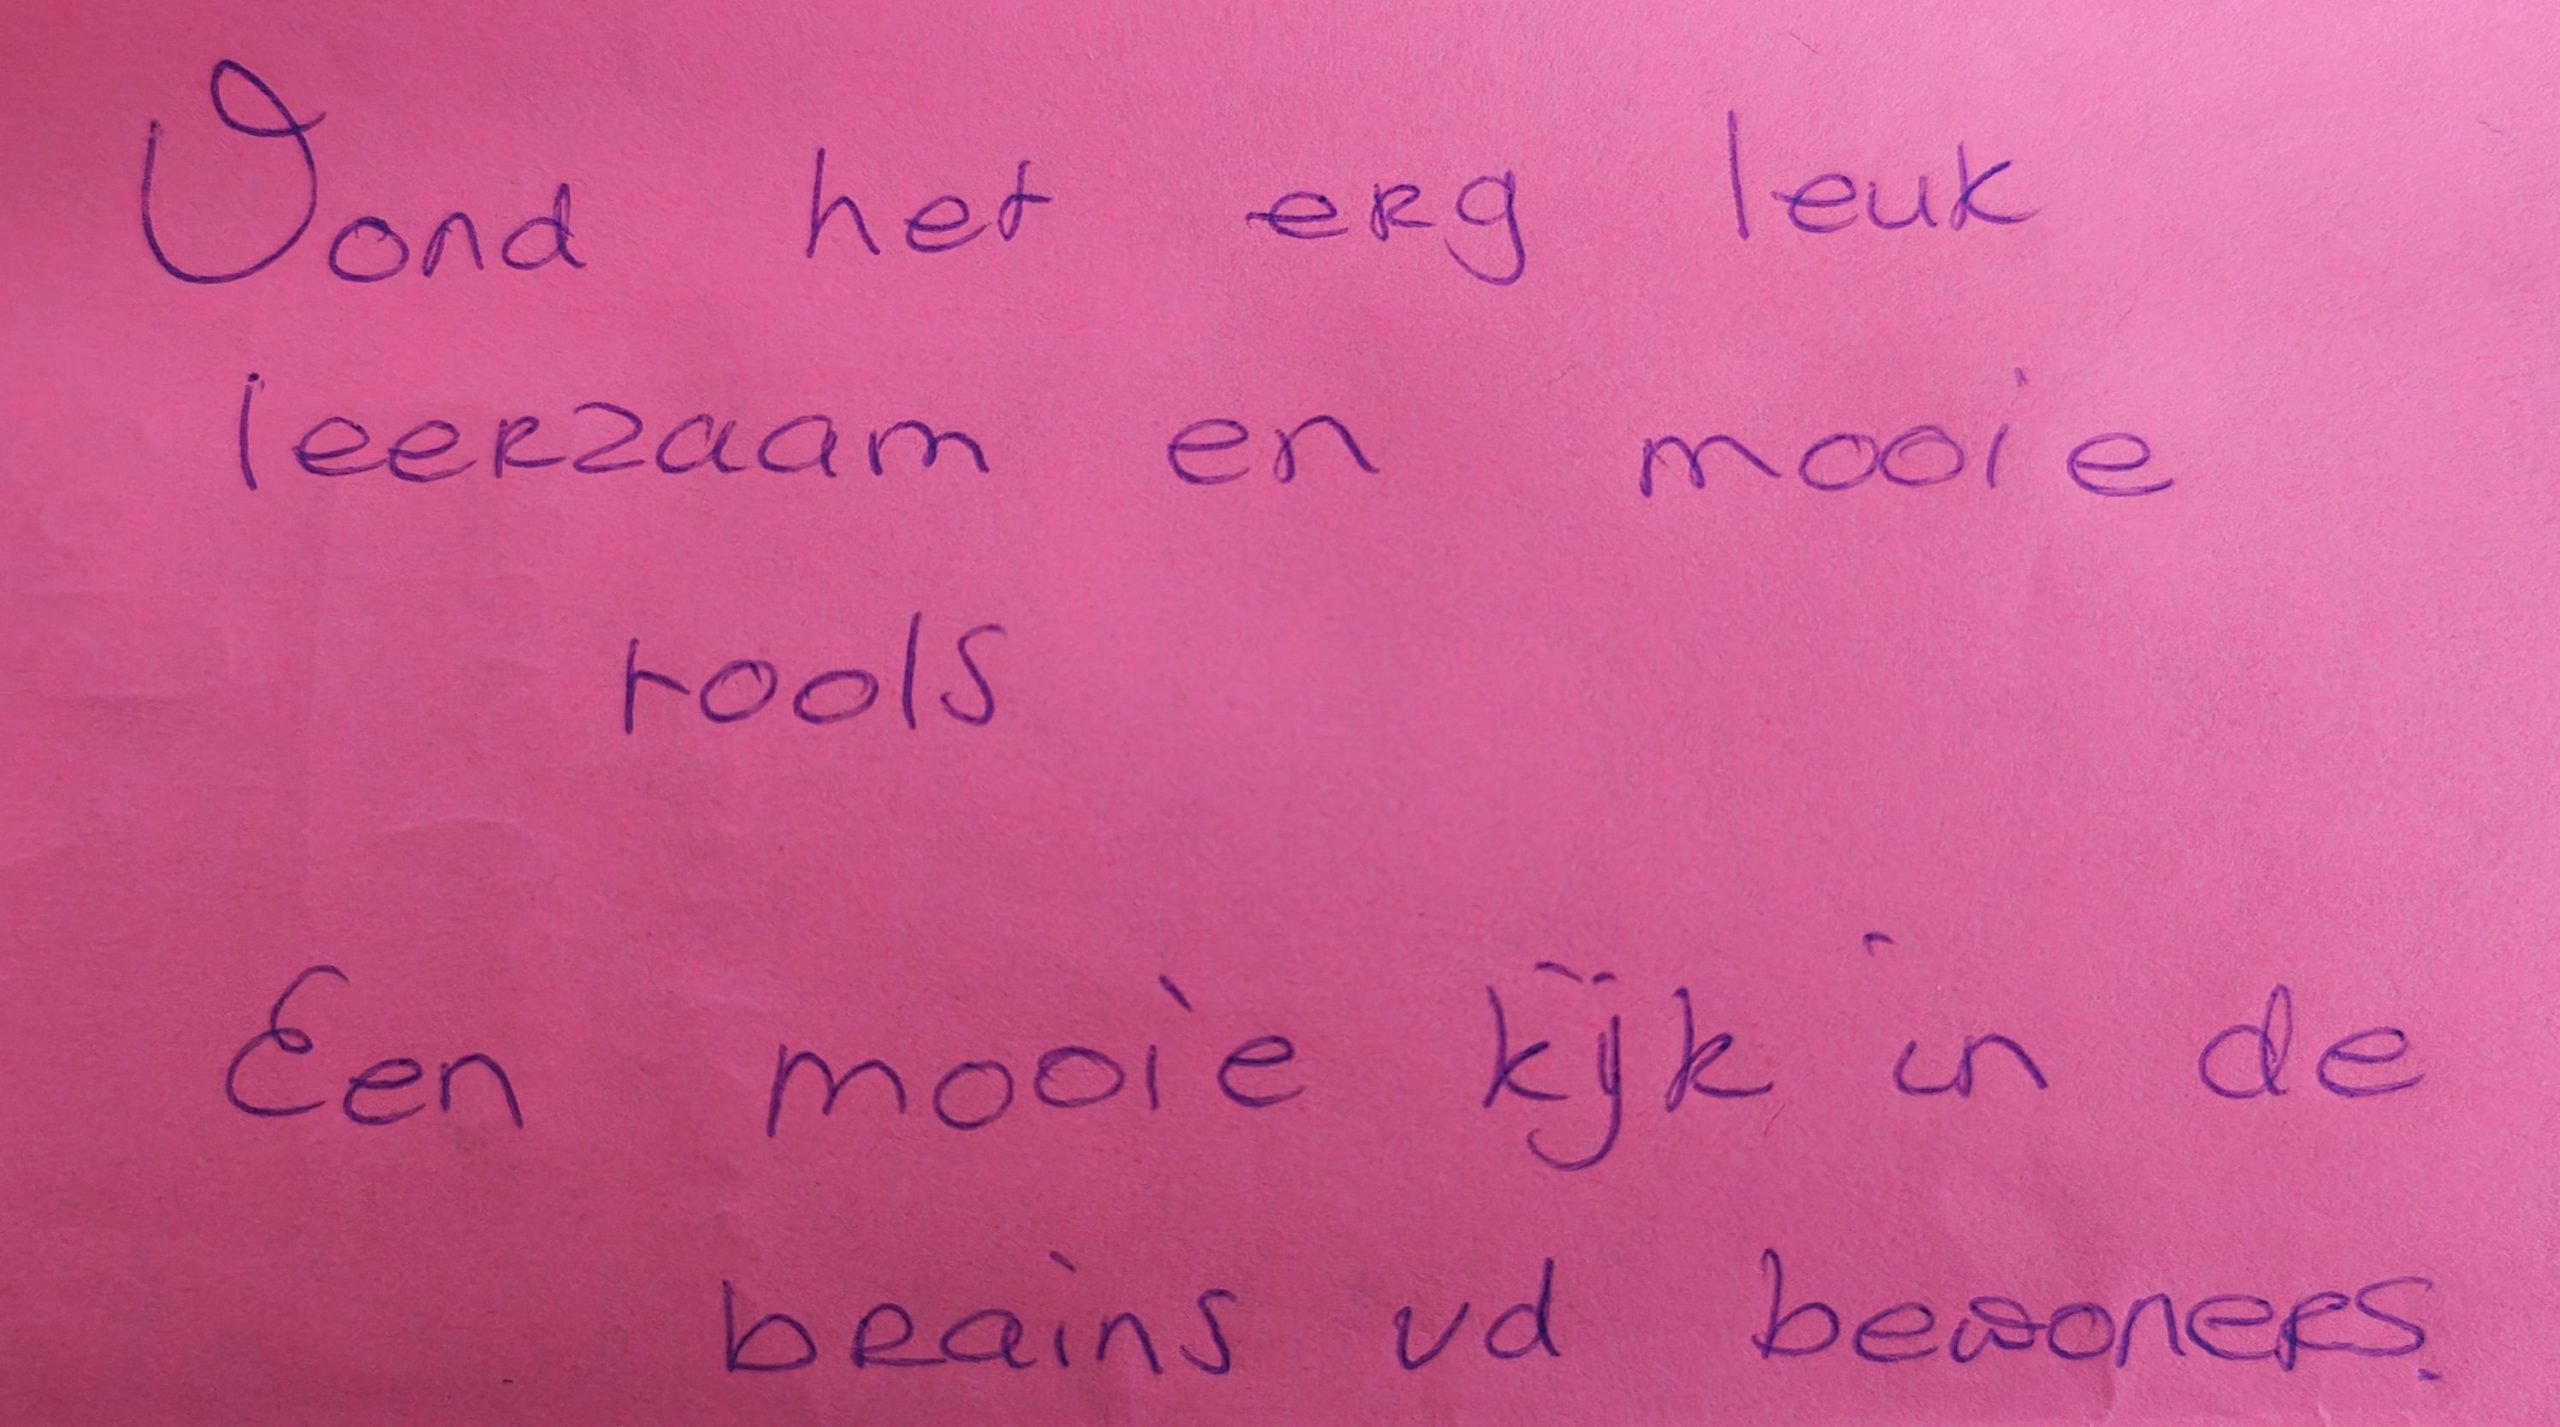 Vond het erg leuk
leerzaam en mooie
tools
Een mooie kijk in de
brains vd bewoners.